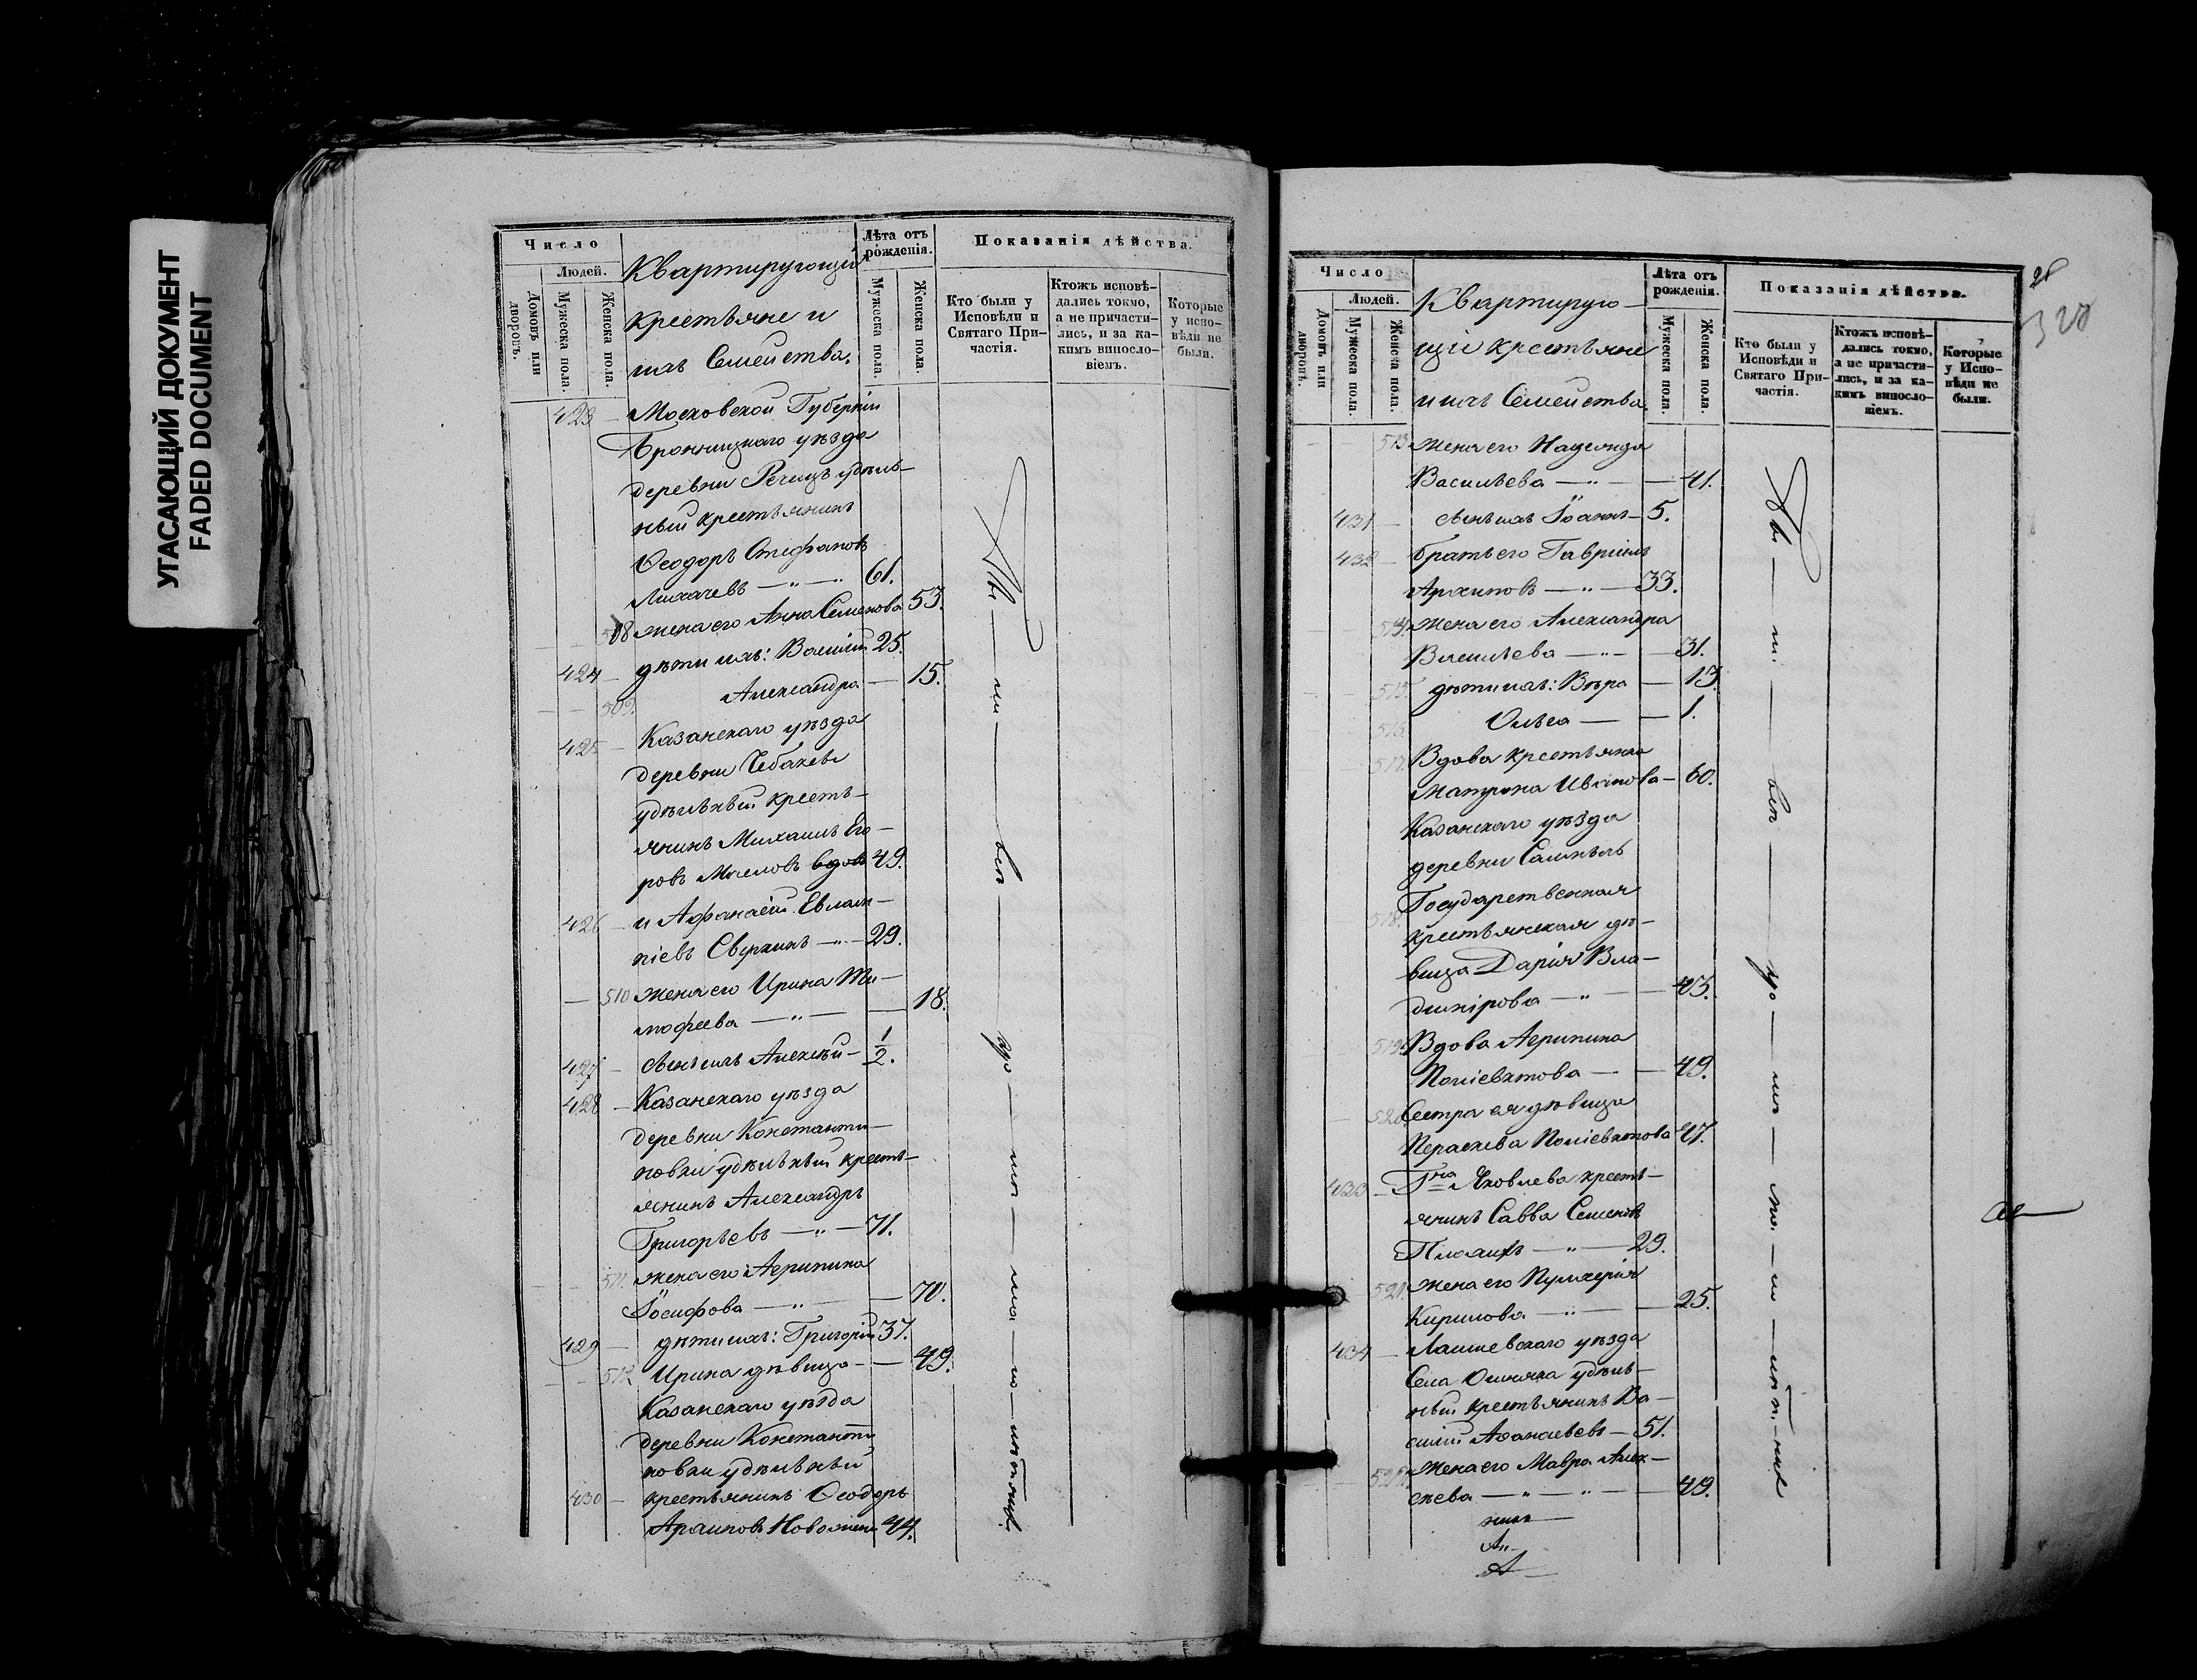 УГАСАЮЩИЙ ДОКУМЕНТ
FADED DOCUMENT
Число
Людей.
Домовъ или дворовъ.
Мужеска пола.
Женска пола.
Квартирующіи
крестьяне и
ихъ Семейства.
Лѣта отъ рожденія.
Мужеска пола.
Женска пола.
Показанія дѣйства.
Кто были у Исповѣди и Святаго Причастія.
Ктожъ исповѣдались токмо, а не причастились, и за какимъ винословіемъ.
Которые у исповѣди не были.
423 Московской Губерніи
Бронницкаго уѣзда
деревни Речицъ удѣль-
ный крестьянинъ
Ѳеодоръ Стефановъ
Лихачевъ 61.
508 жена его Анна Семенова 53.
424 дѣти ихъ: Василій 25.
509. Александра 15.
425 Казанскаго уѣзда
деревни Чебаксы
удѣльный кресть-
янинъ Михаилъ Его-
ровъ Масловъ вдовъ 49.
426 и Аѳанасій Евлам-
піевъ 29.
510 жена его Ирина Ти-
мофеева 18.
427 сынъ ихъ Алексѣй 1/2.
428 Казанскаго уѣзда
деревни Константи-
новки удѣльный кресть-
янинъ Александръ
Григорьевъ 71.
511. жена его Агрипина
Іосифова 70.
429 дѣти ихъ: Григорій 37.
512 Ирина дѣвица 49.
Казанскаго уѣзда
деревни Константи
новки удѣльный
430 крестьянинъ Ѳеодоръ
Архиповъ 44.
28
328
Число
Людей.
Домовъ или дворовъ.
Мужеска пола.
Женска пола.
Квартирую-
щіи крестьяне
и ихъ Семейства.
Лѣта отъ рожденія.
Мужеска пола.
Женска пола.
Показанія дѣйства.
Кто были у Исповѣди и Святаго Причастія.
Ктожъ исповѣдались токмо, а не причастились, и за какимъ винословіемъ.
Которые у Исповѣди не были.
513 жена его Надежда
Васильева 41.
431 сынъ ихъ Іоаннъ 5.
432 братъ его Гавріилъ
Архиповъ 33.
514. жена его Александра
Васильева 31.
515. дѣти ихъ: Вѣра 13.
516. Ольга 1.
517. Вдова крестьянка
Матрона Иванова 60.
Казанскаго уѣзда
деревни
Государственная
518. крестьянская дѣ-
вица Дарія Вла-
димірова 43.
519. Вдова Агрипина
Поліевктова 49.
520. Сестра ея дѣвица
Пераскева Поліевктова 47.
433 Гна Яковлева кресть-
янинъ Савва Семеновъ
29.
521. жена его Пулхерія
Кирилова 25.
434 Лаишевскаго уѣзда
Села удѣль-
ный крестьянинъ Ва-
силій Аѳанасьевъ 51.
522. Жена его Мавра Алек-
сѣева 49.